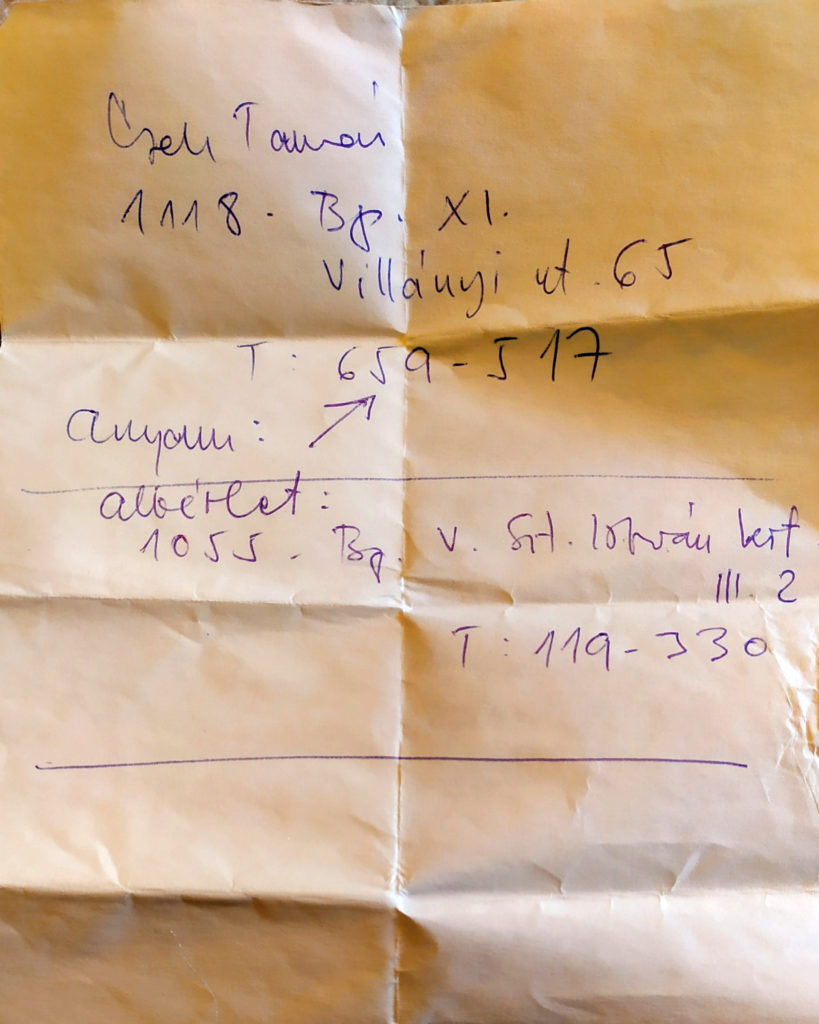 Cseh Tamás
1118. Bp. XI.
Villányi út. 65
T: 659-517
anyám:
albérlet:
1055. Bp. V. Szt. István krt
III. 2
T: 119-330